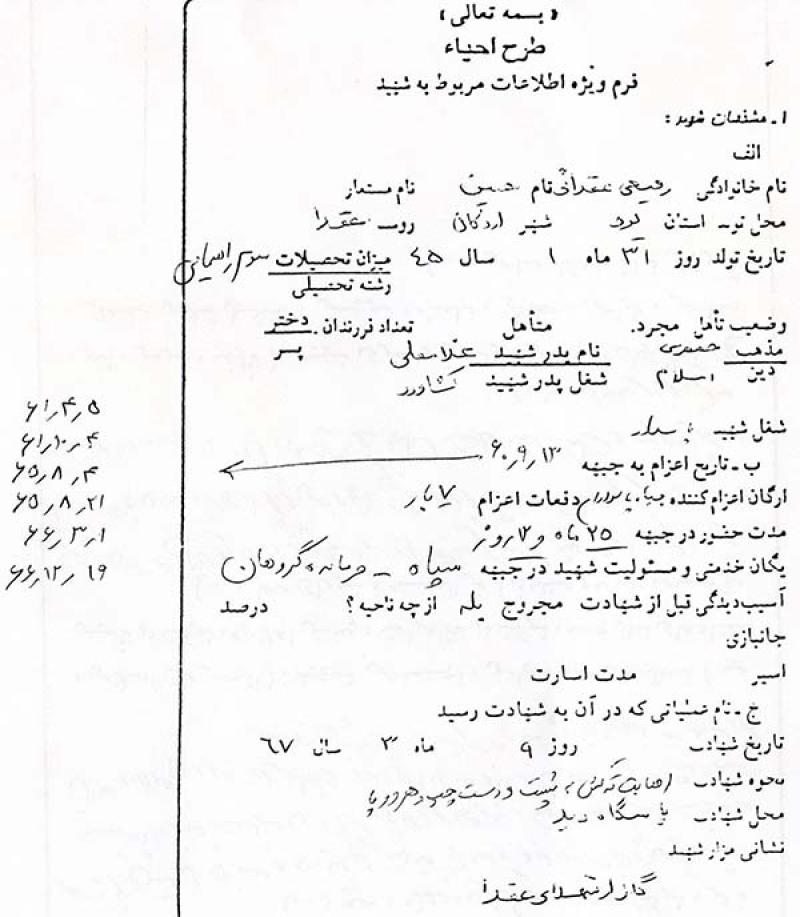 « بسمه تعالی »
طرح احیاء
فرم ویژه اطلاعات مربوط به شهید
۱ ـ مشخصات شهید :
الف
نام خانوادگی رفیعی عقدائی نام حسین نام مستعار
محل تولد استان یزد شهر اردکان روستا عقدا
تاریخ تولد روز ۳۱ ماه ۱ سال ۴۵ میزان تحصیلات سوم راهنمائی
رشته تحصیلی
وضعیت تأهل مجرد. متأهل تعداد فرزندان . دختر
پسر
مذهب جعفری نام پدر شهید غلامعلی
دین اسلام شغل پدر شهید کشاورز
شغل شهید پاسدار
ب ـ تاریخ اعزام به جبهه ۶۰٫۹٫۱۳
۶۱٫۴٫۵
۶۱٫۱۰٫۴
۶۵٫۸٫۴
۶۵٫۸٫۲۱
۶۶٫۳٫۱
۶۶٫۱۲٫۱۹
ارگان اعزام کننده سپاه پاسداران دفعات اعزام ۷ بار
مدت حضور در جبهه ۲۵ ماه و ۱۲ روز
یگان خدمتی و مسئولیت شهید در جبهه سپاه ـ فرمانده گروهان
آسیب دیدگی قبل از شهادت مجروح بله از چه ناحیه ؟ درصد
جانبازی
اسیر مدت اسارت
ج ـ نام عملیاتی که در آن به شهادت رسید
تاریخ شهادت روز ۹ ماه ۳ سال ۶۷
نحوه شهادت اصابت ترکش به پشت و دست چپ و هر دو پا
محل شهادت پاسگاه زید
نشانی مزار شهید
گلزار شهدای عقدا